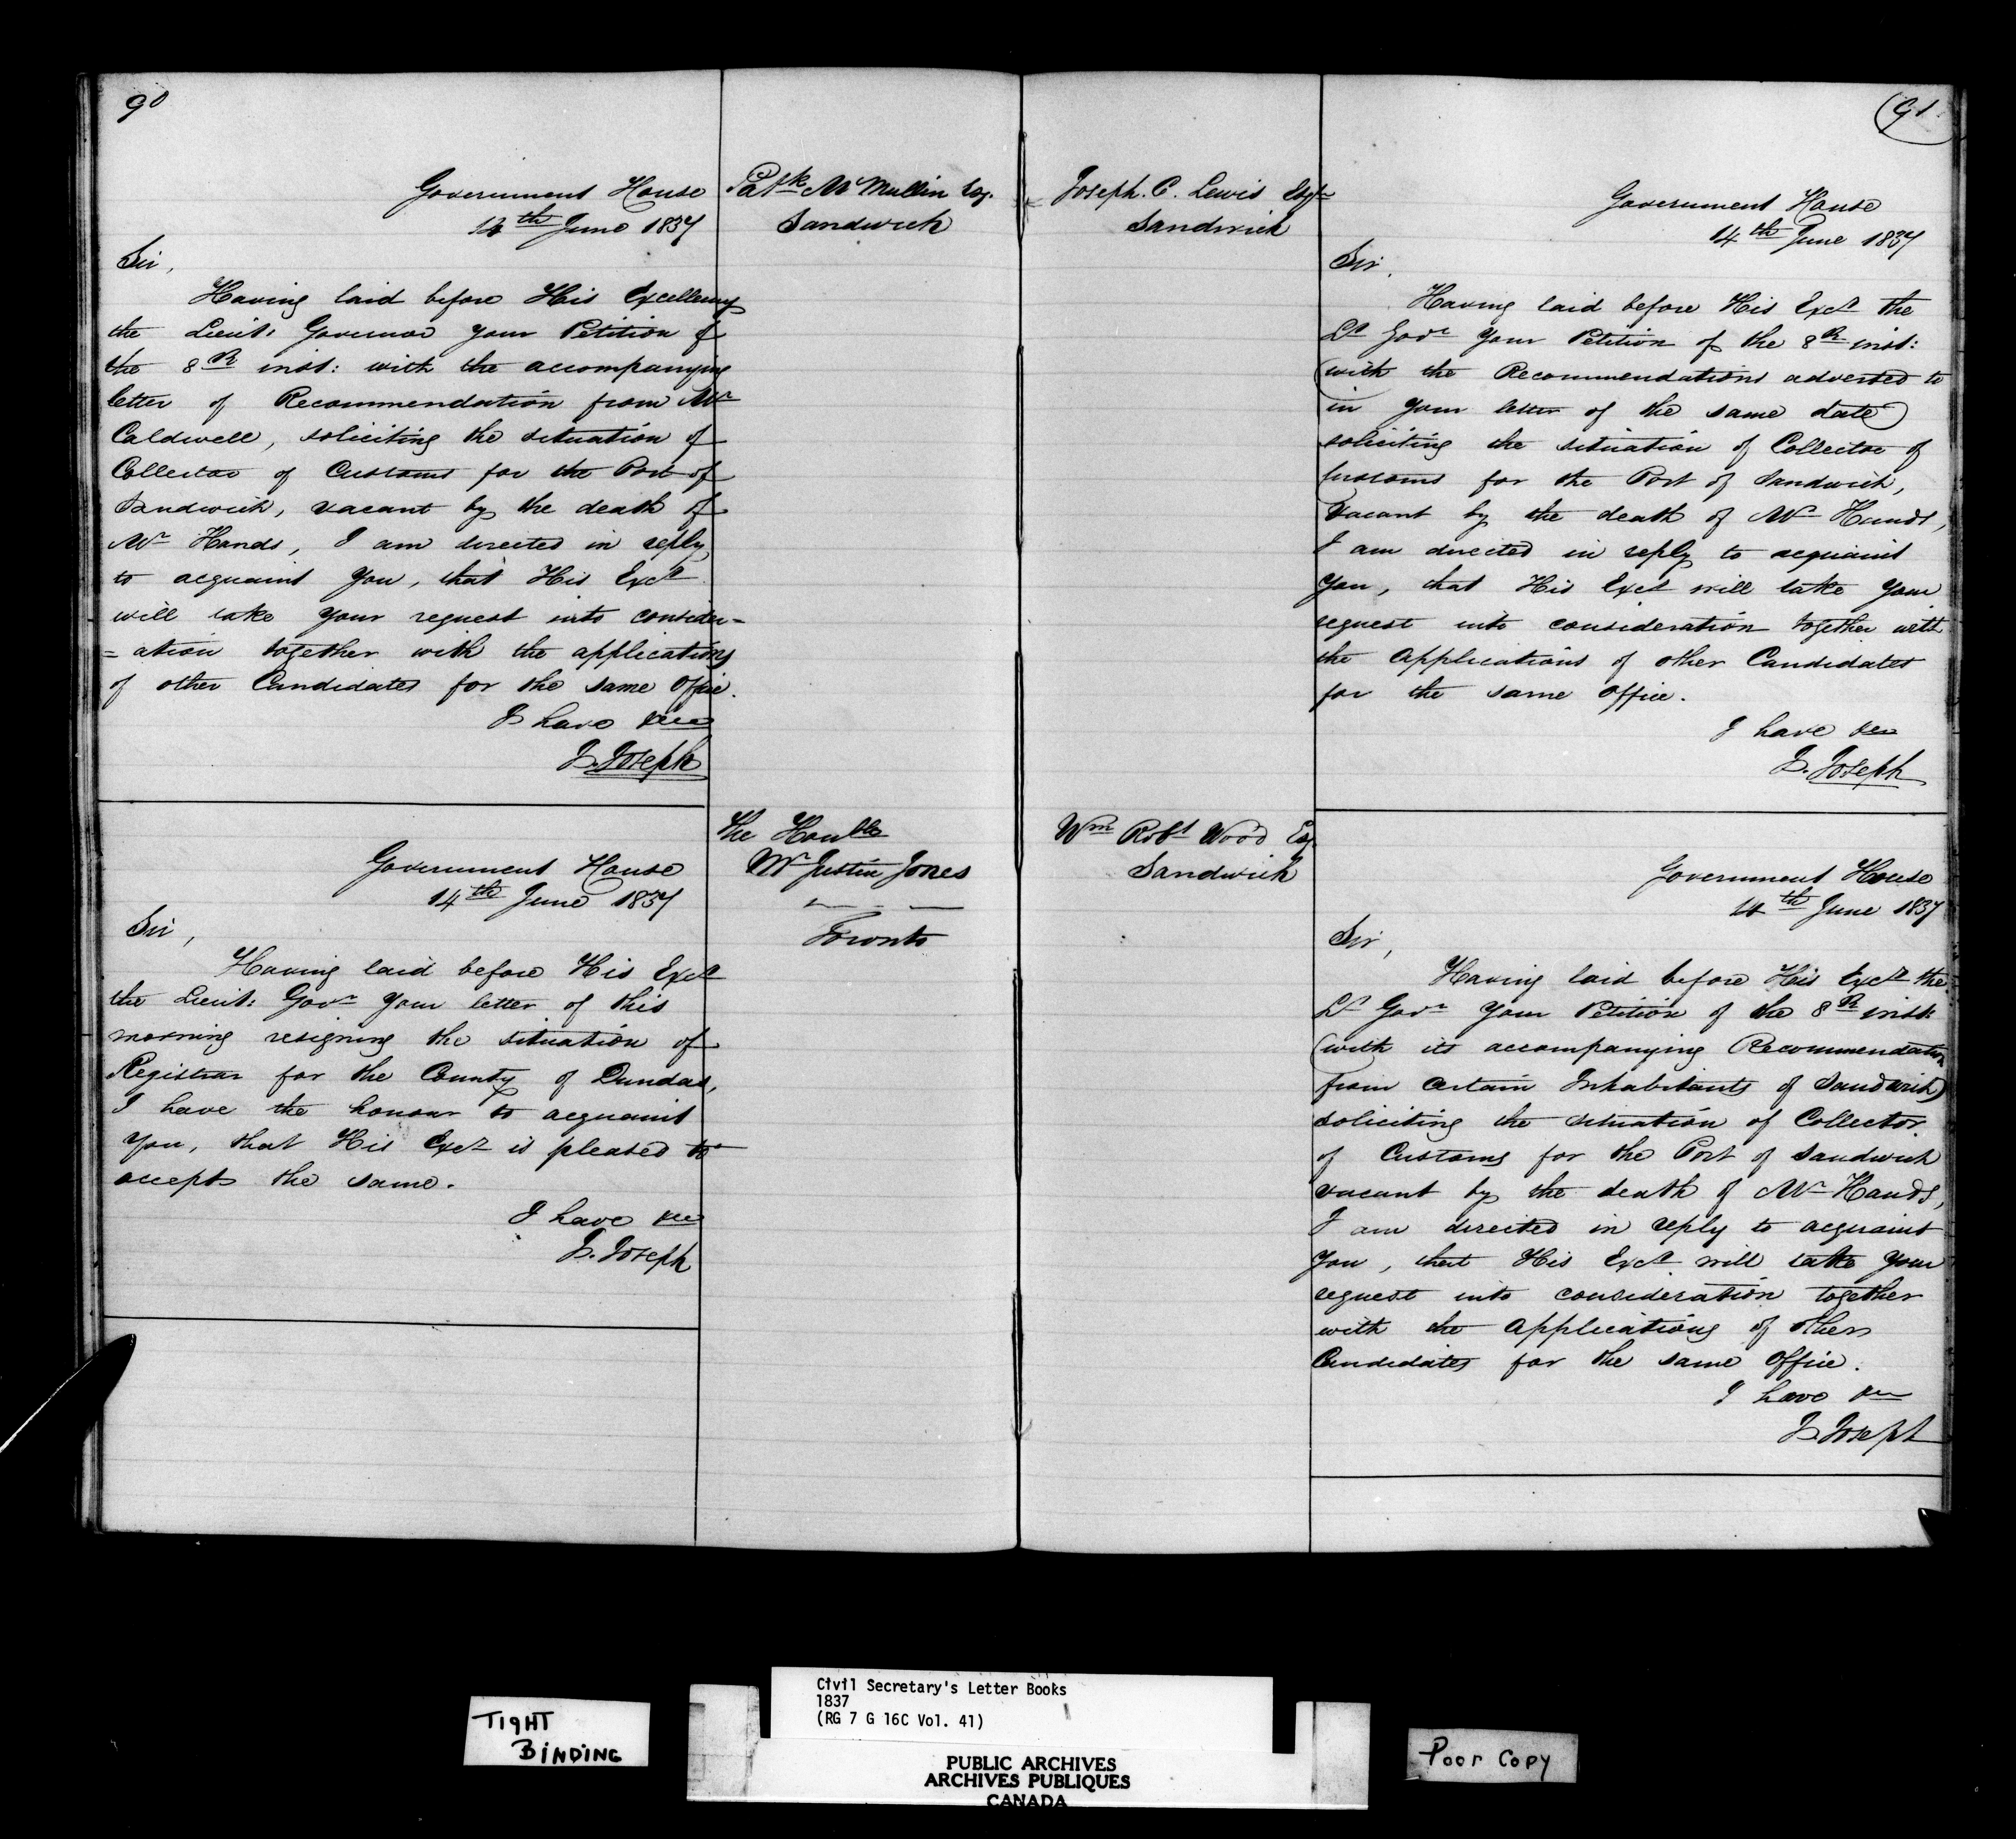 90
Government House
14th June 1837
Patk McMullin Esq.
Sandwich
Sir,
Having laid before His Excellency
the Lieut: Governor your Petition of
the 8th inst: with the accompanying
letter of Recommendation from Mr
Caldwell, soliciting the situation of
Collector of Customs for the Port of
Sandwich, vacant by the death of
Mr Hands, I am directed in reply
to acquaint you, that His Excy
will take your request into consider=
=ation together with the applications
of other Candidates for the same Office.
I have &c
J. Joseph
Government House
14th June 1837
The Honble
Mr Justice Jones
Toronto
Sir,
Having laid before His Excy
the Lieut: Govr your letter of this
morning resigning the situation of
Registrar for the County of Dundas,
I have the honour to acquaint
you, that His Excy is pleased to
accept the same.
I have &c
J. Joseph
91
Joseph. C. Lewis Esqr
Sandwich
Government House
14th June 1837
Sir,
Having laid before His Excy the
Lt Govr your Petition of the 8th inst:
(with the Recommendations adverted to
in your letter of the same date)
soliciting the situation of Collector of
Customs for the Port of Sandwich,
vacant by the death of Mr Hands,
I am directed in reply to acquaint
you, that His Excy will take your
request into consideration together with
the Applications of other Candidates
for the same office.
I have &c
J. Joseph
Wm Robt Wood Esq
Sandwich
Government House
14th June 1837
Sir,
Having laid before His Excy the
Lt Govr your Petition of the 8th inst:
(with its accompanying Recommendation
from certain Inhabitants of Sandwich)
soliciting the situation of Collector
of Customs for the Port of Sandwich
vacant by the death of Mr Hands,
I am directed in reply to acquaint
you, that His Excy will take your
request into consideration together
with the Applications of other
Candidates for the same Office.
I have &c
J. Joseph
TIGHT
BINDING
Civil Secretary's Letter Books
1837
(RG 7 G 16C Vol. 41)
PUBLIC ARCHIVES
ARCHIVES PUBLIQUES
CANADA
Poor Copy